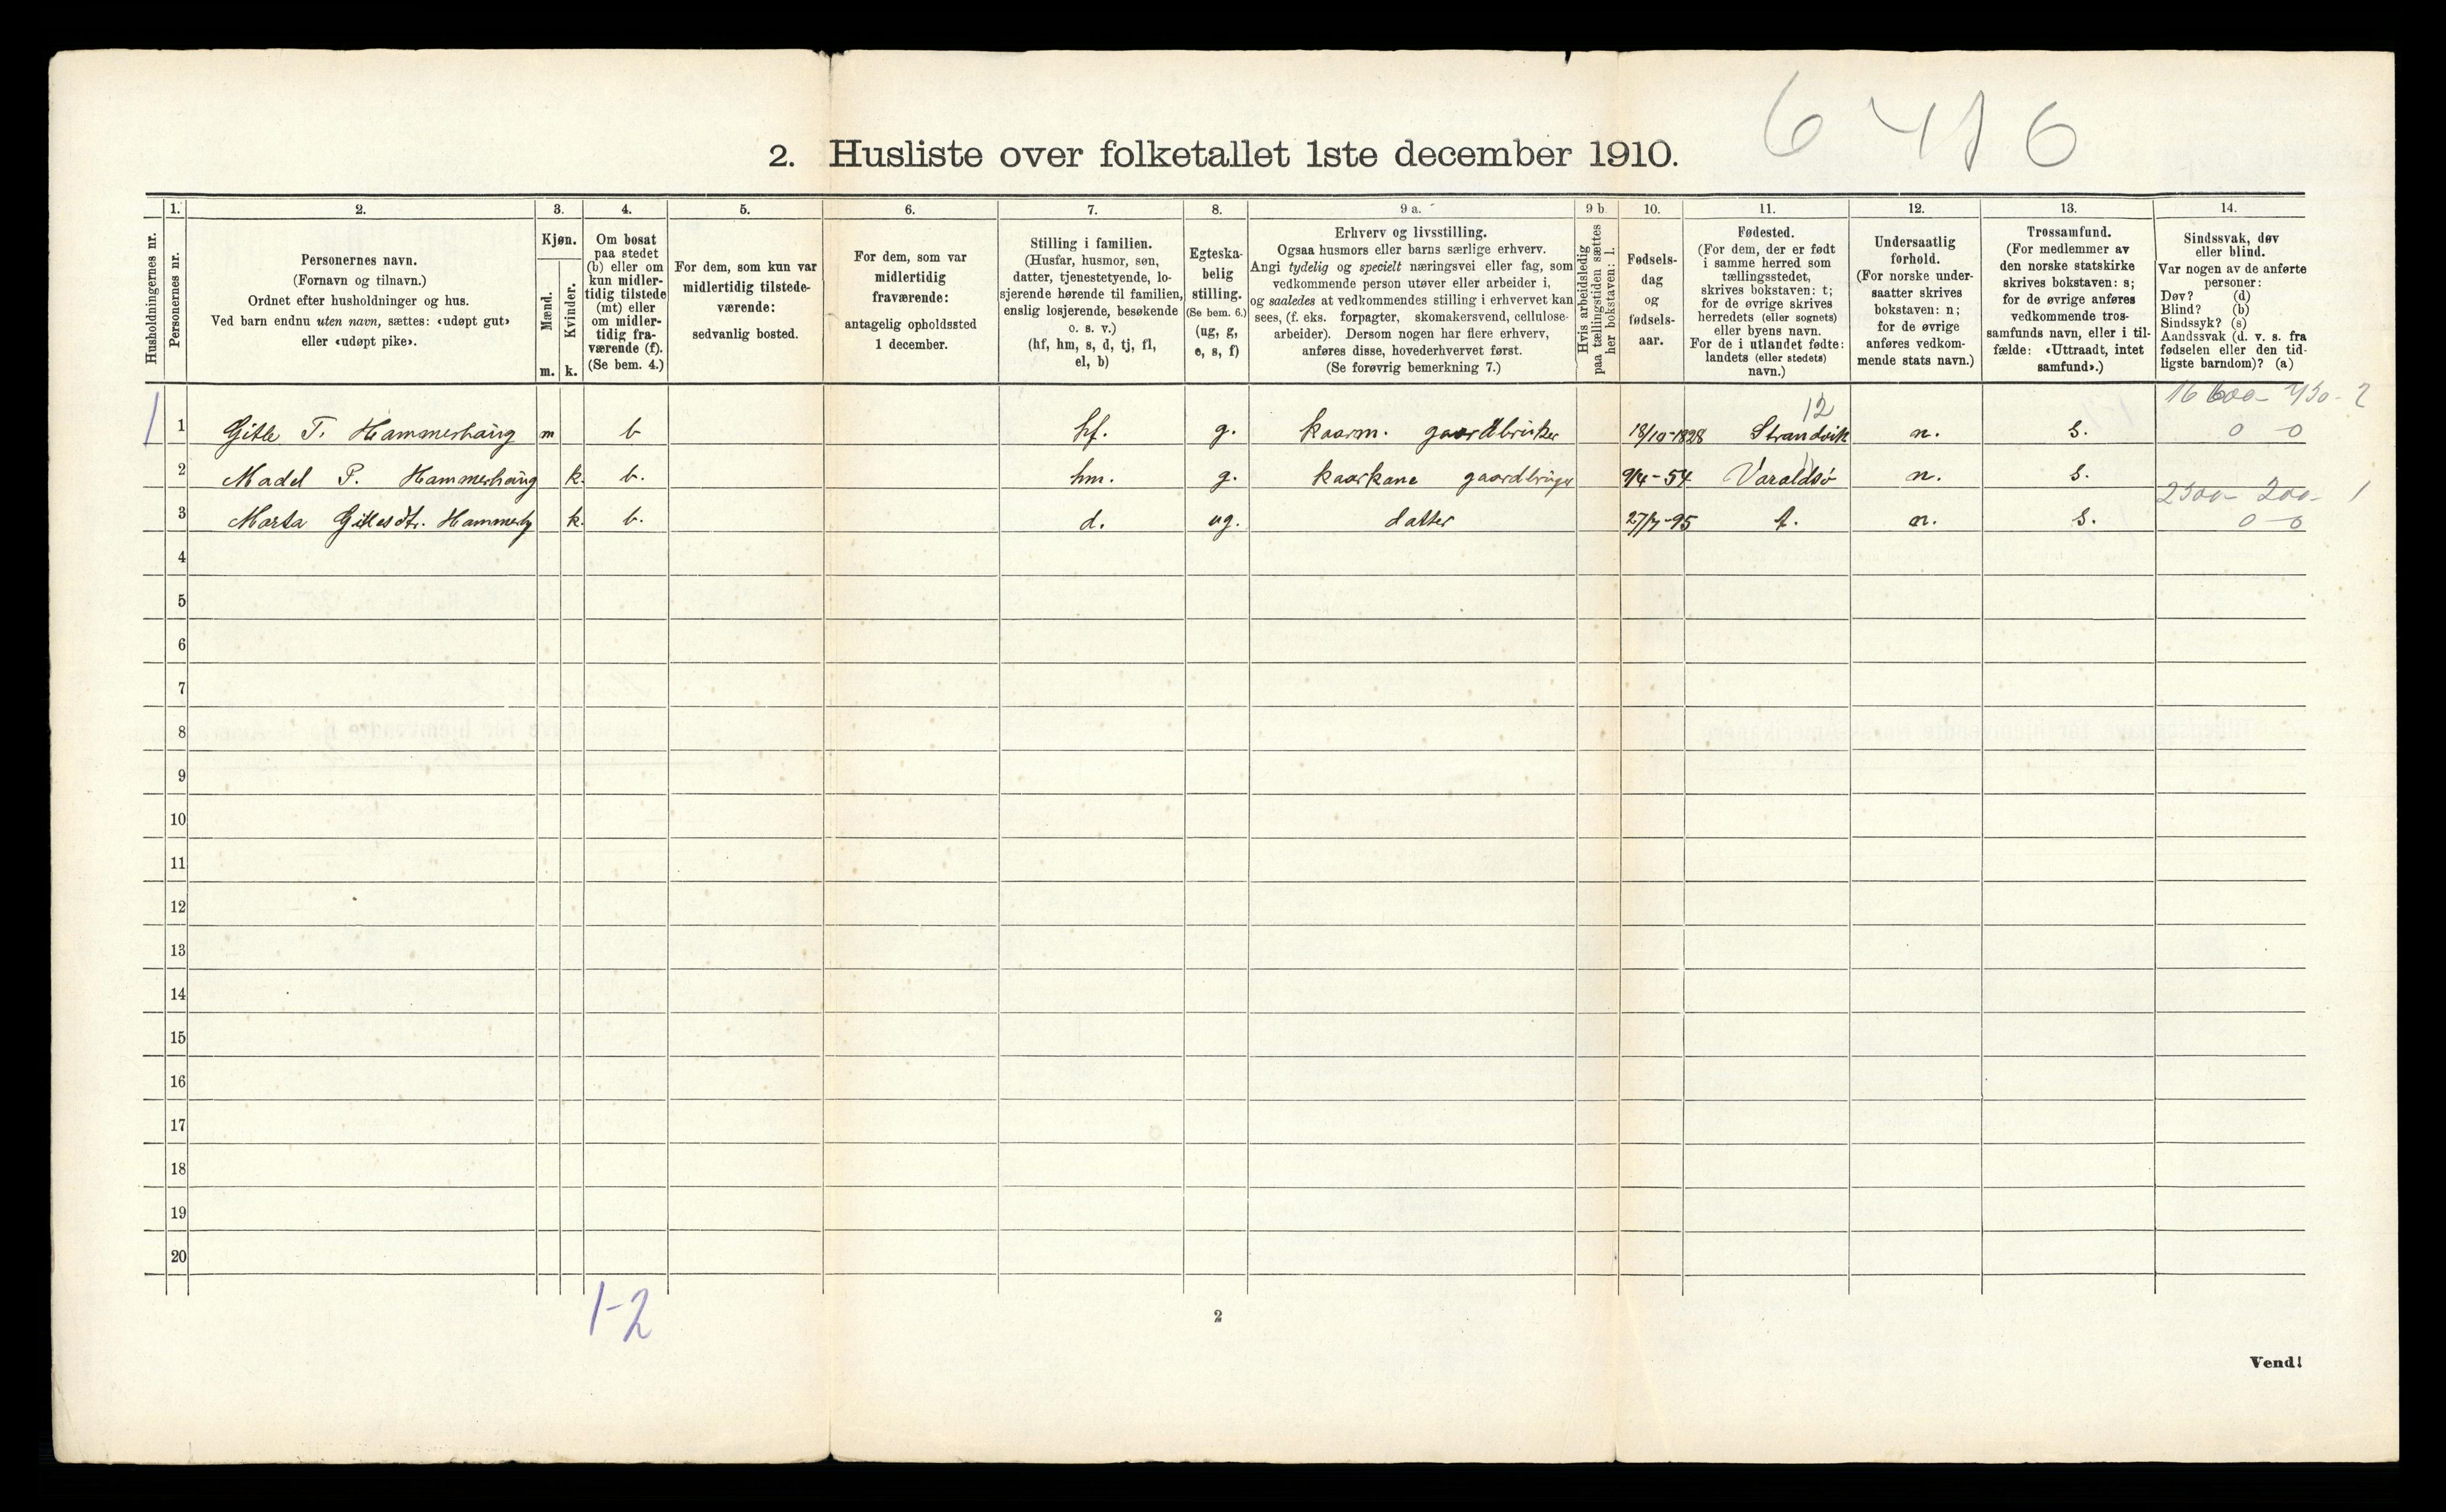 6 416
2. Husliste over folketallet 1ste december 1910.
Husholdningernes nr.
1.
Personernes nr.
2.
Personernes navn.
(Fornavn og tilnavn.)
Ordnet efter husholdninger og hus.
Ved barn endnu uten navn, sættes: «udøpt gut»
eller «udøpt pike».
3.
Kjøn.
Mænd.
m.
Kvinder.
k.
4.
Om bosat
paa stedet
(b) eller om
kun midler-
tidig tilstede
(mt) eller
om midler-
tidig fra-
værende (f).
(Se bem. 4.)
5.
For dem, som kun var
midlertidig tilstede-
værende:
sedvanlig bosted.
6.
For dem, som var
midlertidig
fraværende:
antagelig opholdssted
1 december.
7.
Stilling i familien.
(Husfar, husmor, søn,
datter, tjenestetyende, lo-
sjerende hørende til familien,
enslig losjerende, besøkende
o. s. v.)
(hf, hm, s, d, tj, fl,
el, b)
8.
Egteska-
belig
stilling.
(Se bem. 6.)
(ug, g,
e, s, f)
9 a.
Erhverv og livsstilling.
Ogsaa husmors eller barns særlige erhverv.
Angi tydelig og specielt næringsvei eller fag, som
vedkommende person utøver eller arbeider i,
og saaledes at vedkommendes stilling i erhvervet kan
sees, (f. eks. forpagter, skomakersvend, cellulose-
arbeider). Dersom nogen har flere erhverv,
anføres disse, hovederhvervet først.
(Se forøvrig bemerkning 7.)
9 b
Hvis arbeidsledig
paa tællingstiden sættes
her bokstaven: l.
10.
Fødsels-
dag
og
fødsels-
aar.
11.
Fødested.
(For dem, der er født
i samme herred som
tællingsstedet,
skrives bokstaven: t;
for de øvrige skrives
herredets (eller sognets)
eller byens navn.
For de i utlandet fødte:
landets (eller stedets)
navn.)
12.
Undersaatlig
forhold.
(For norske under-
saatter skrives
bokstaven: n;
for de øvrige
anføres vedkom-
mende stats navn.)
13.
Trossamfund.
(For medlemmer av
den norske statskirke
skrives bokstaven: s;
for de øvrige anføres
vedkommende tros-
samfunds navn, eller i til-
fælde: «Uttraadt, intet
samfund».)
14.
Sindssvak, døv
eller blind.
Var nogen av de anførte
personer:
Døv? (d)
Blind? (b)
Sindssyk? (s)
Aandssvak (d. v. s. fra
fødselen eller den tid-
ligste barndom)? (a)
12 16 600- 450-2
1 1 Gitle T. Hammerhaug m b hf. g. kaarm. gaardbruker 18/10-1828 Strandvik n. s. 0 0
2 Madel P. Hammerhaug k. b. hm. g. kaarkone gaardbruger 9/4-54 Varaldsø n. s.
2300- 200- 1
3 Marta Gitlesdtr. Hammerhg k. b. d. ug. datter 27/7-95 t. n. s. 0 0
4
5
6
7
8
9
10
11
12
13
14
15
16
17
18
19
20
1-2
2
Vend!